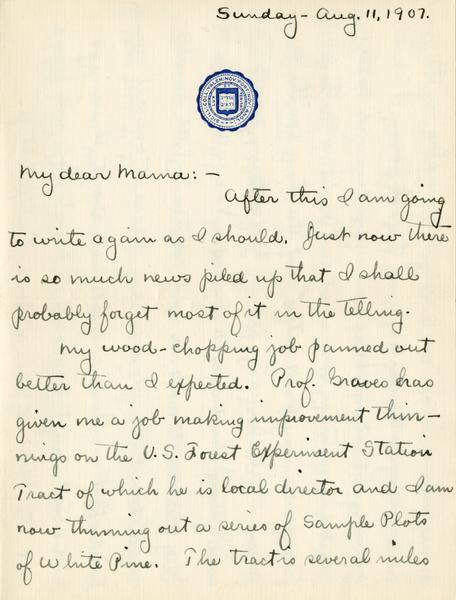 Sunday - Aug. 11, 1907.
My dear Mama: -
After this I am going
to write again as I should. Just now there
is so much news piled up that I shall
probably forget most of it in the telling.
My wood-chopping job panned out
better than I expected. Prof. Graves has
given me a job making improvement thin-
nings on the U.S. Forest Experiment Station
Tract of which he is local director and I am
now thinning out a series of Sample Plots
of White Pine. The tract is several miles